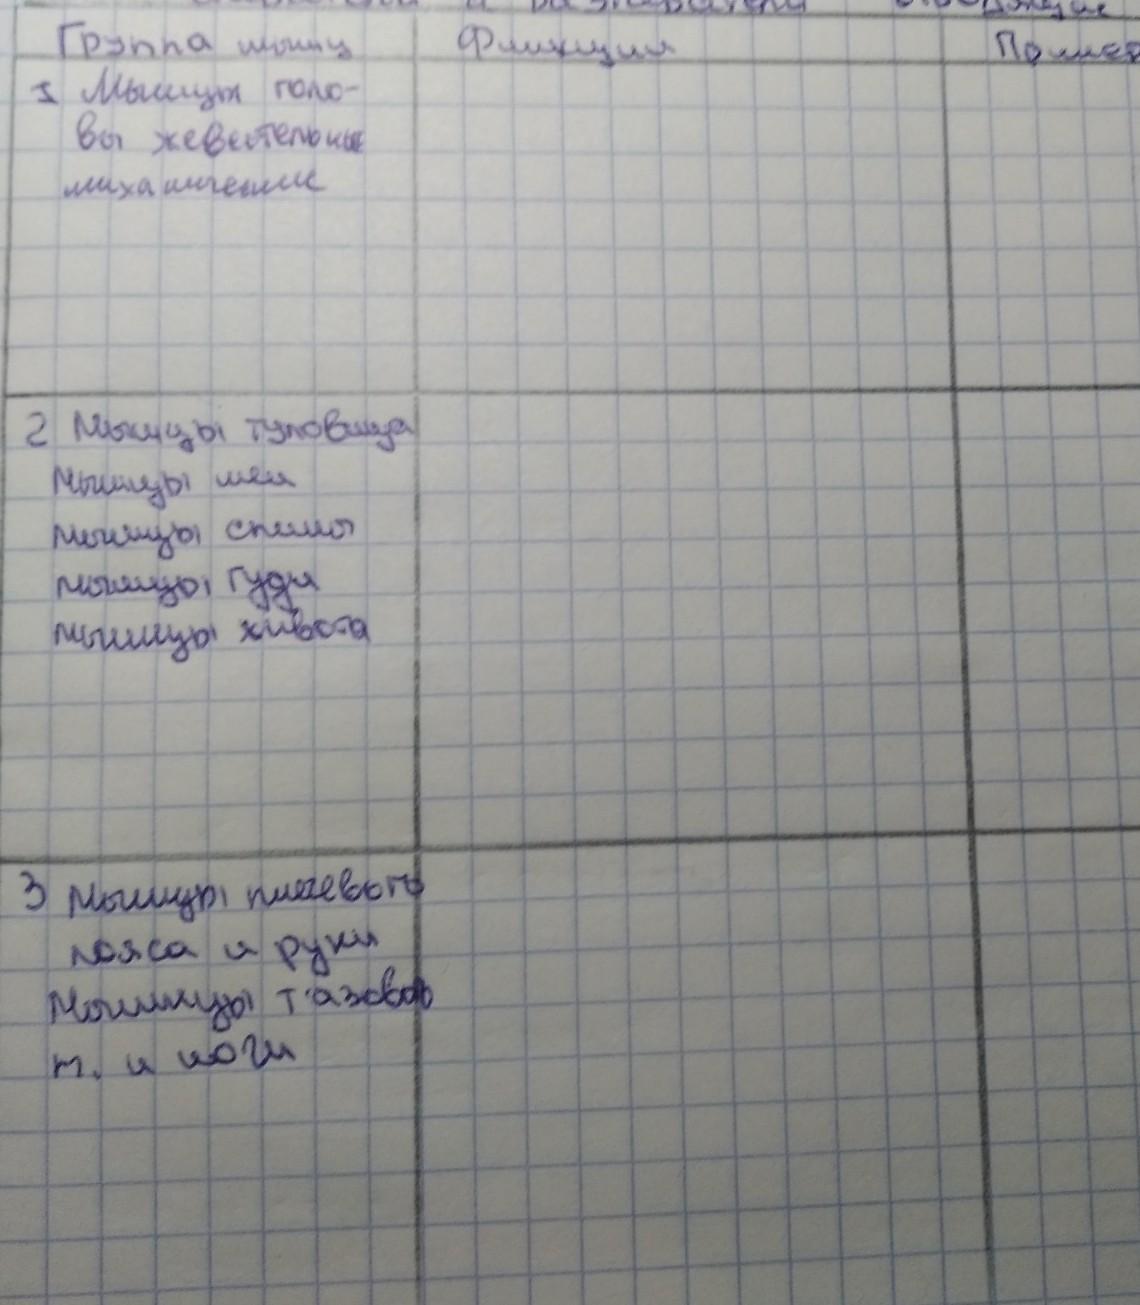 и
Группа мышц Функция Пример
1 Мышцы голо-
вы жевательные
2 Мышцы туловища
Мышцы шеи
мышцы спины
мышцы гуди
мышцы живота
3 Мышцы плечевого
пояса и руки
Мышцы тазово
п. и ноги